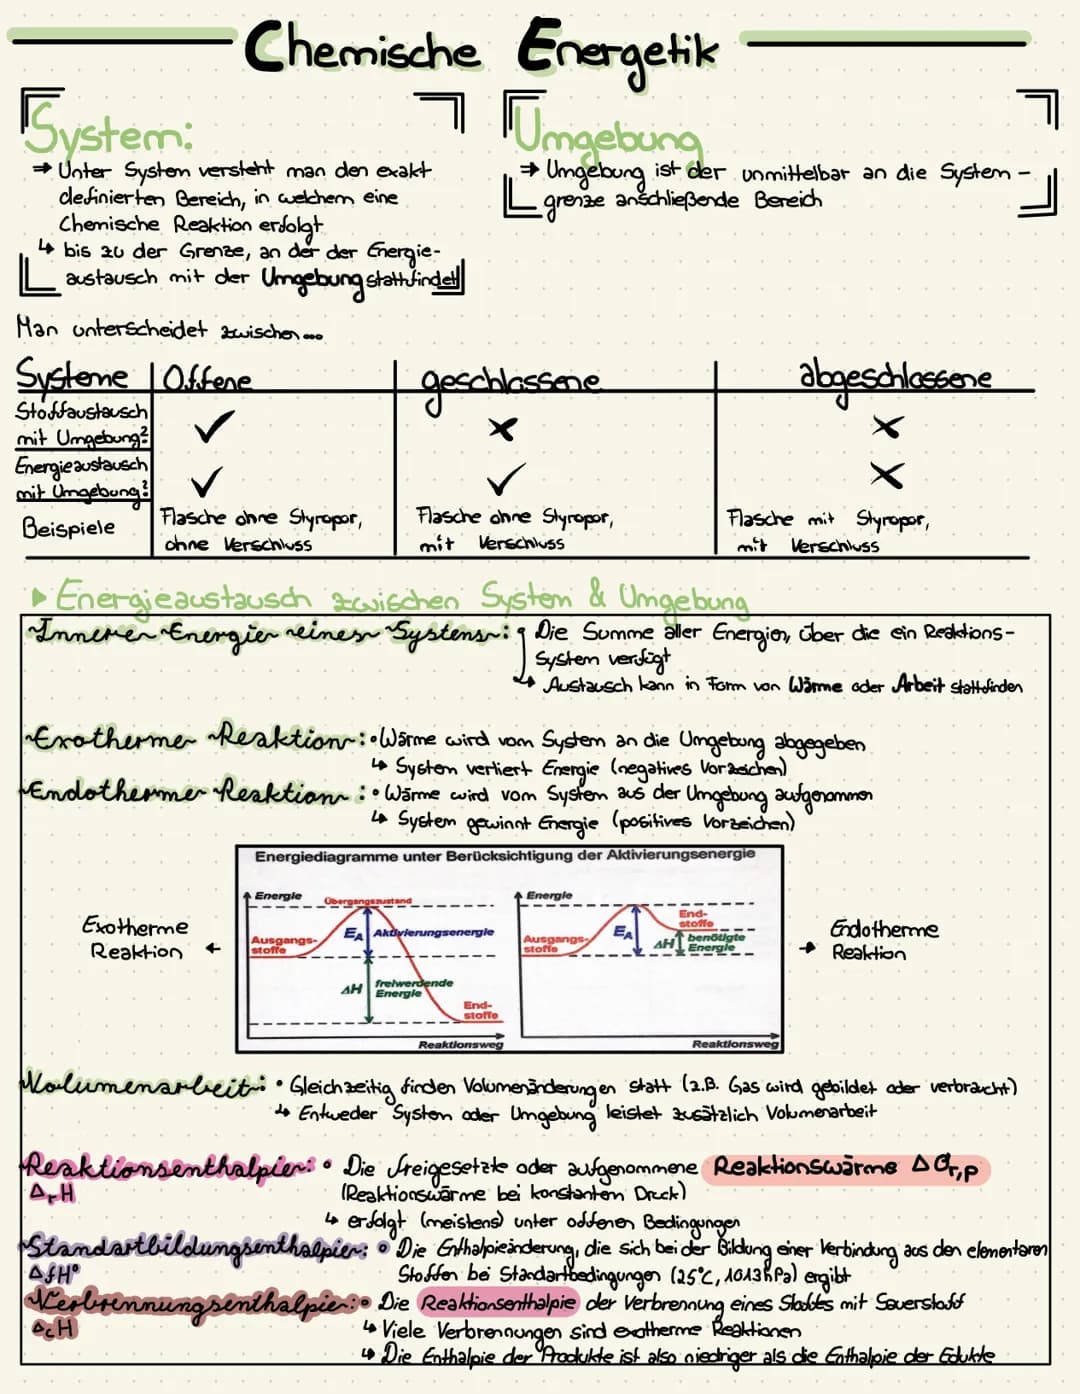 Chemische Energetik
System:
→ Unter System versteht man den exakt
definierten Bereich, in welchem eine
Chemische Reaktion erfolgt
↳ bis zu der Grenze, an der der Energie-
austausch mit der Umgebung stattfindet
Umgebung
→ Umgebung ist der unmittelbar an die System-
grenze anschließende Bereich
Man unterscheidet zwischen...
Systeme | Offene geschlossene abgeschlossene
Stoffaustausch
mit Umgebung? ✓ ✗ ✗
Energieaustausch
mit Umgebung? ✓ ✓ ✗
Beispiele
Flasche ohne Styropor,
ohne Verschluss
Flasche ohne Styropor,
mit Verschluss
Flasche mit Styropor,
mit Verschluss
▶ Energieaustausch zwischen System & Umgebung
Innere Energie eines Systems: Die Summe aller Energien, über die ein Reaktions-
System verfügt
↳ Austausch kann in Form von Wärme oder Arbeit stattfinden
Exotherme Reaktion: • Wärme wird vom System an die Umgebung abgegeben
↳ System verliert Energie (negatives Vorzeichen)
Endotherme Reaktion: • Wärme wird vom System aus der Umgebung aufgenommen
↳ System gewinnt Energie (positives Vorzeichen)
Energiediagramme unter Berücksichtigung der Aktivierungsenergie
Exotherme
Reaktion ←
Energie
Übergangszustand
Ausgangs-
stoffe
EA Aktivierungsenergie
ΔH freiwerdende
Energie
End-
stoffe
Reaktionsweg
Energie
Ausgangs-
stoffe
EA
End-
stoffe
ΔH benötigte
Energie
Reaktionsweg
→ Endotherme
Reaktion
Volumenarbeit: • Gleichzeitig finden Volumenänderungen statt (z.B. Gas wird gebildet oder verbraucht)
↳ Entweder System oder Umgebung leistet zusätzlich Volumenarbeit
Reaktionsenthalpie: • Die freigesetzte oder aufgenommene Reaktionswärme ΔQr,p
ΔrH (Reaktionswärme bei konstantem Druck)
↳ erfolgt (meistens) unter offenen Bedingungen
Standartbildungsenthalpie: • Die Enthalpieänderung, die sich bei der Bildung einer Verbindung aus den elementaren
ΔfH° Stoffen bei Standartbedingungen (25°C, 1013hPa) ergibt
Verbrennungsenthalpie: • Die Reaktionsenthalpie der Verbrennung eines Stoffes mit Sauerstoff
ΔcH
↳ Viele Verbrennungen sind exotherme Reaktionen
↳ Die Enthalpie der Produkte ist also niedriger als die Enthalpie der Edukte